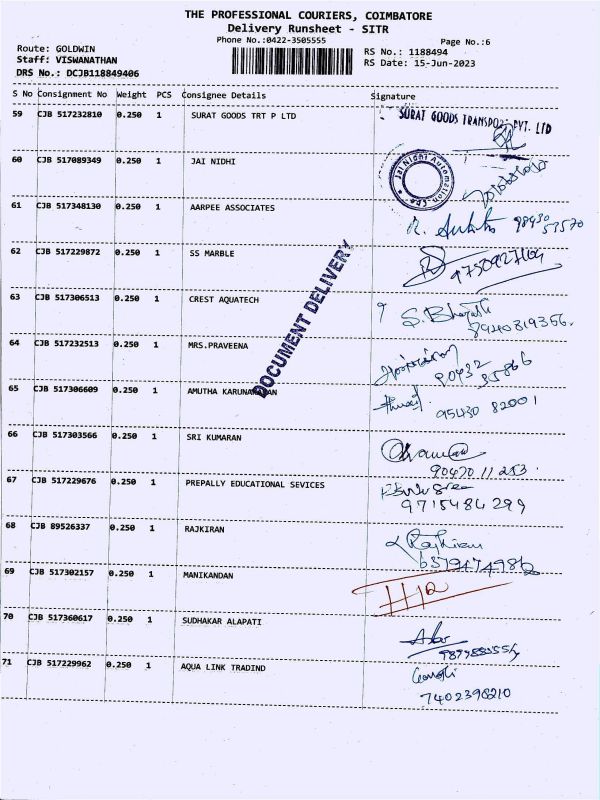 THE PROFESSIONAL COURIERS, COIMBATORE
Delivery Runsheet - SITR
Phone No.:0422-3505555
Page No.:6
Route: GOLDWIN
RS No.: 1188494
Staff: VISWANATHAN
RS Date: 15-Jun-2023
DRS No.: DCJB118849406
S No Consignment No Weight PCS Consignee Details Signature
59 CJB 517232810 0.250 1 SURAT GOODS TRT P LTD SURAT GOODS TRANSPORT PVT. LTD
60 CJB 517089349 0.250 1 JAI NIDHI Jai Nidhi Automation
61 CJB 517348130 0.250 1 AARPEE ASSOCIATES 98430
53570
62 CJB 517229872 0.250 1 SS MARBLE
DOCUMENT DELIVERY
63 CJB 517306513 0.250 1 CREST AQUATECH S. Bharathi
8940819356.
64 CJB 517232513 0.250 1 MRS.PRAVEENA
90432
35866
65 CJB 517306609 0.250 1 AMUTHA KARUNAKARAN
95430 82001
66 CJB 517303566 0.250 1 SRI KUMARAN
90470 11 253.
67 CJB 517229676 0.250 1 PREPALLY EDUCATIONAL SEVICES
9715484299
68 CJB 89526337 0.250 1 RAJKIRAN Rajkiran
69 CJB 517302157 0.250 1 MANIKANDAN
70 CJB 517360617 0.250 1 SUDHAKAR ALAPATI
71 CJB 517229962 0.250 1 AQUA LINK TRADIND
7402398210